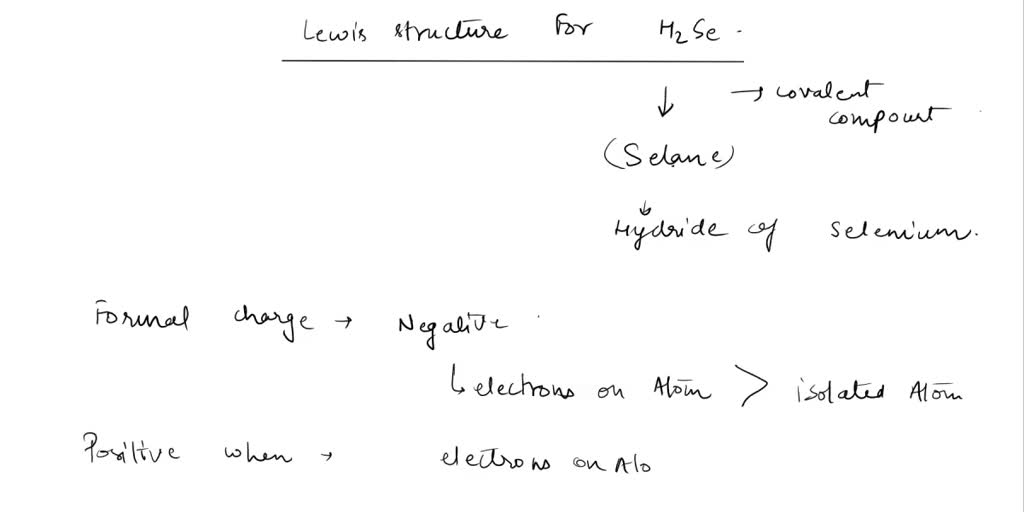 Lewis structure For H2Se.
→ covalent
compount
(Selane)
Hydride of selenium.
Formal charge → Negative
↳ electrons on Atom > isolated Atom
Positive when → electrons on Ato